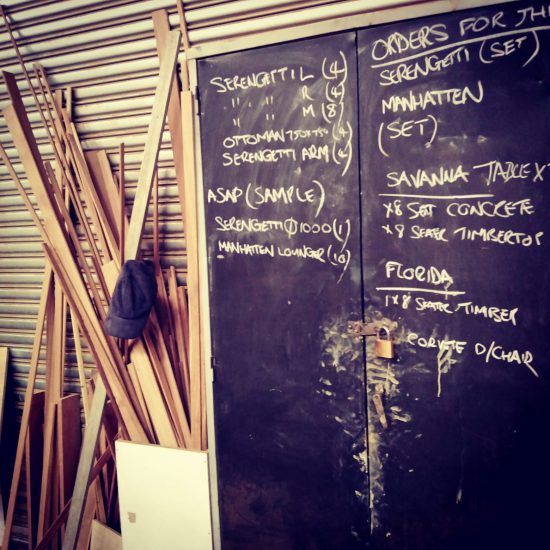 SERENGETTI L (4)
" " R (4)
" " M (8)
OTTOMAN 750x750 (4)
SERENGETTI ARM (4)
ASAP (SAMPLE)
SERENGETTI Ø 1000 (1)
MANHATTEN LOUNGER (10)
ORDERS FOR THI
SERENGETTI (SET)
MANHATTEN
(SET)
SAVANNA TABLE X
X8 SET CONCRETE
X 8 SEATER TIMBERTOP
FLORIDA
1 X 8 SEATER TIMBER
D/CHAIR